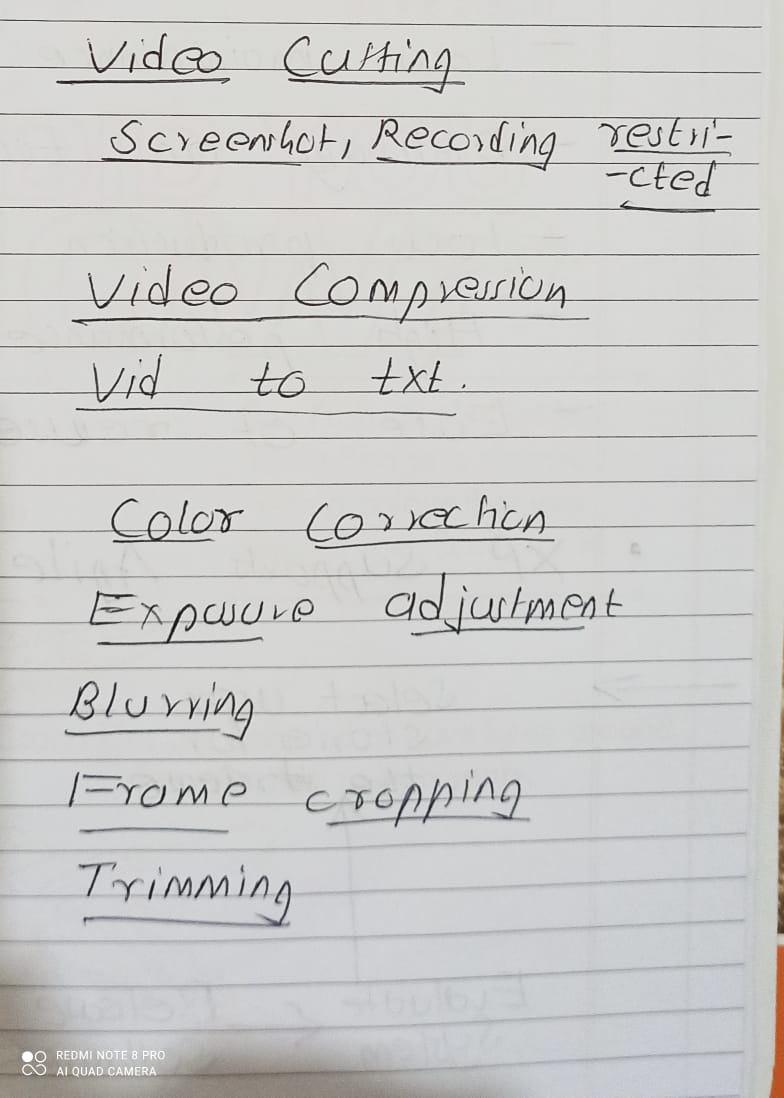 Video Cutting
Screenshot, Recording restri-
-cted
Video Compression
Vid to txt.
Color Correction
Exposure adjustment
Blurring
Frame cropping
Trimming
REDMI NOTE 8 PRO
AI QUAD CAMERA